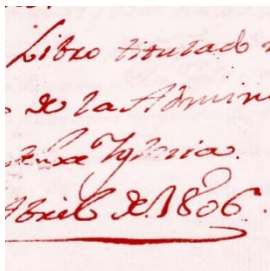 Libro titulad
de la Admin
Yglesia.
Abril de 1806.